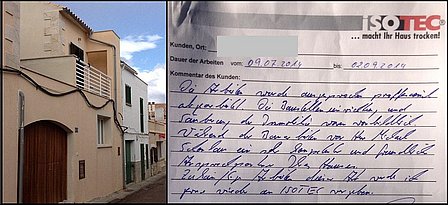 ISOTEC®
... macht Ihr Haus trocken!
Kunden, Ort:
Dauer der Arbeiten vom: 09.07.2014 bis: 02.09.2014
Kommentar des Kunden:
Die Arbeiten wurden ausgesprochen professionell
abgewickelt. Die Baustelleneinrichtung und
Säuberung der Immobilie waren vorbildlich
Während der Bauarbeiten war Herr
ein sehr kompetenter und freundlicher
Ansprechpartner
Zukünftige Arbeiten dieser Art werde ich
gerne wieder an ISOTEC vergeben.